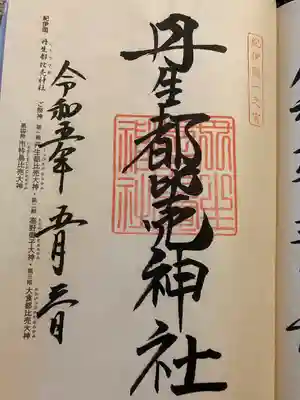 紀伊國一之宮
丹生都比売神社
令和五年 五月三日
紀伊國 丹生都比売神社
ご祭神 第一殿 丹生都比売大神・第二殿 高野御子大神・第三殿 大食都比売大神・
第四殿 市杵島比売大神